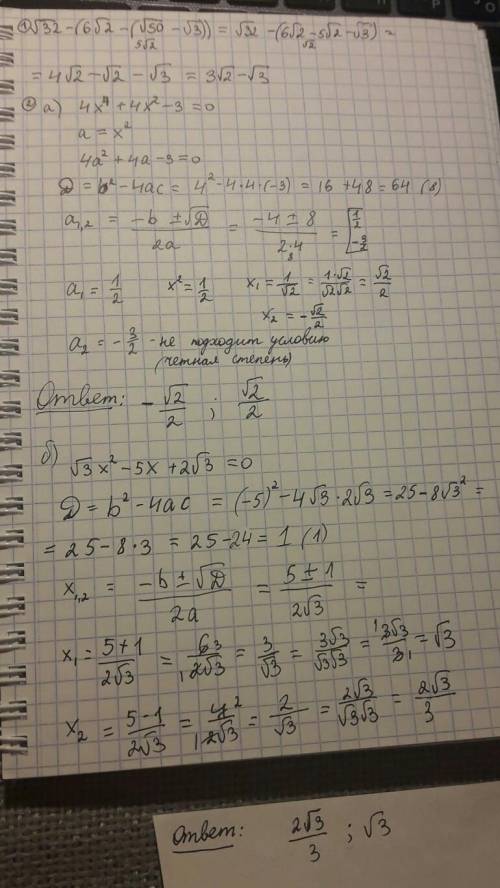 ① √32 − (6√2 − (√50 − √3)) = √32 − (6√2 − 5√2 − √3) =
5√2 √2
= 4√2 − √2 − √3 = 3√2 − √3
② а) 4x⁴ + 4x² − 3 = 0
a = x²
4a² + 4a − 3 = 0
D = b² − 4ac = 4² − 4·4·(−3) = 16 + 48 = 64 (8)
a₁,₂ = (−b ± √D)/2a = (−4 ± 8)/(2·4) = [1/2 −3/2
8
a₁ = 1/2 x² = 1/2 x₁ = 1/√2 = 1·√2/√2√2 = √2/2
x₂ = −√2/2
a₂ = −3/2 - не подходит условию
(четная степень)
Ответ: −√2/2 ; √2/2
б)
√3x² − 5x + 2√3 = 0
D = b² − 4ac = (−5)² − 4√3·2√3 = 25 − 8√3² =
= 25 − 8·3 = 25 − 24 = 1 (1)
x₁,₂ = (−b ± √D)/2a = (5 ± 1)/2√3 =
x₁ = (5+1)/2√3 = 6 3/1 2√3 = 3/√3 = 3√3/√3√3 = 1 3√3/3 1 = √3
x₂ = (5−1)/2√3 = 4 2/1 2√3 = 2/√3 = 2√3/√3√3 = 2√3/3
Ответ: 2√3/3 ; √3